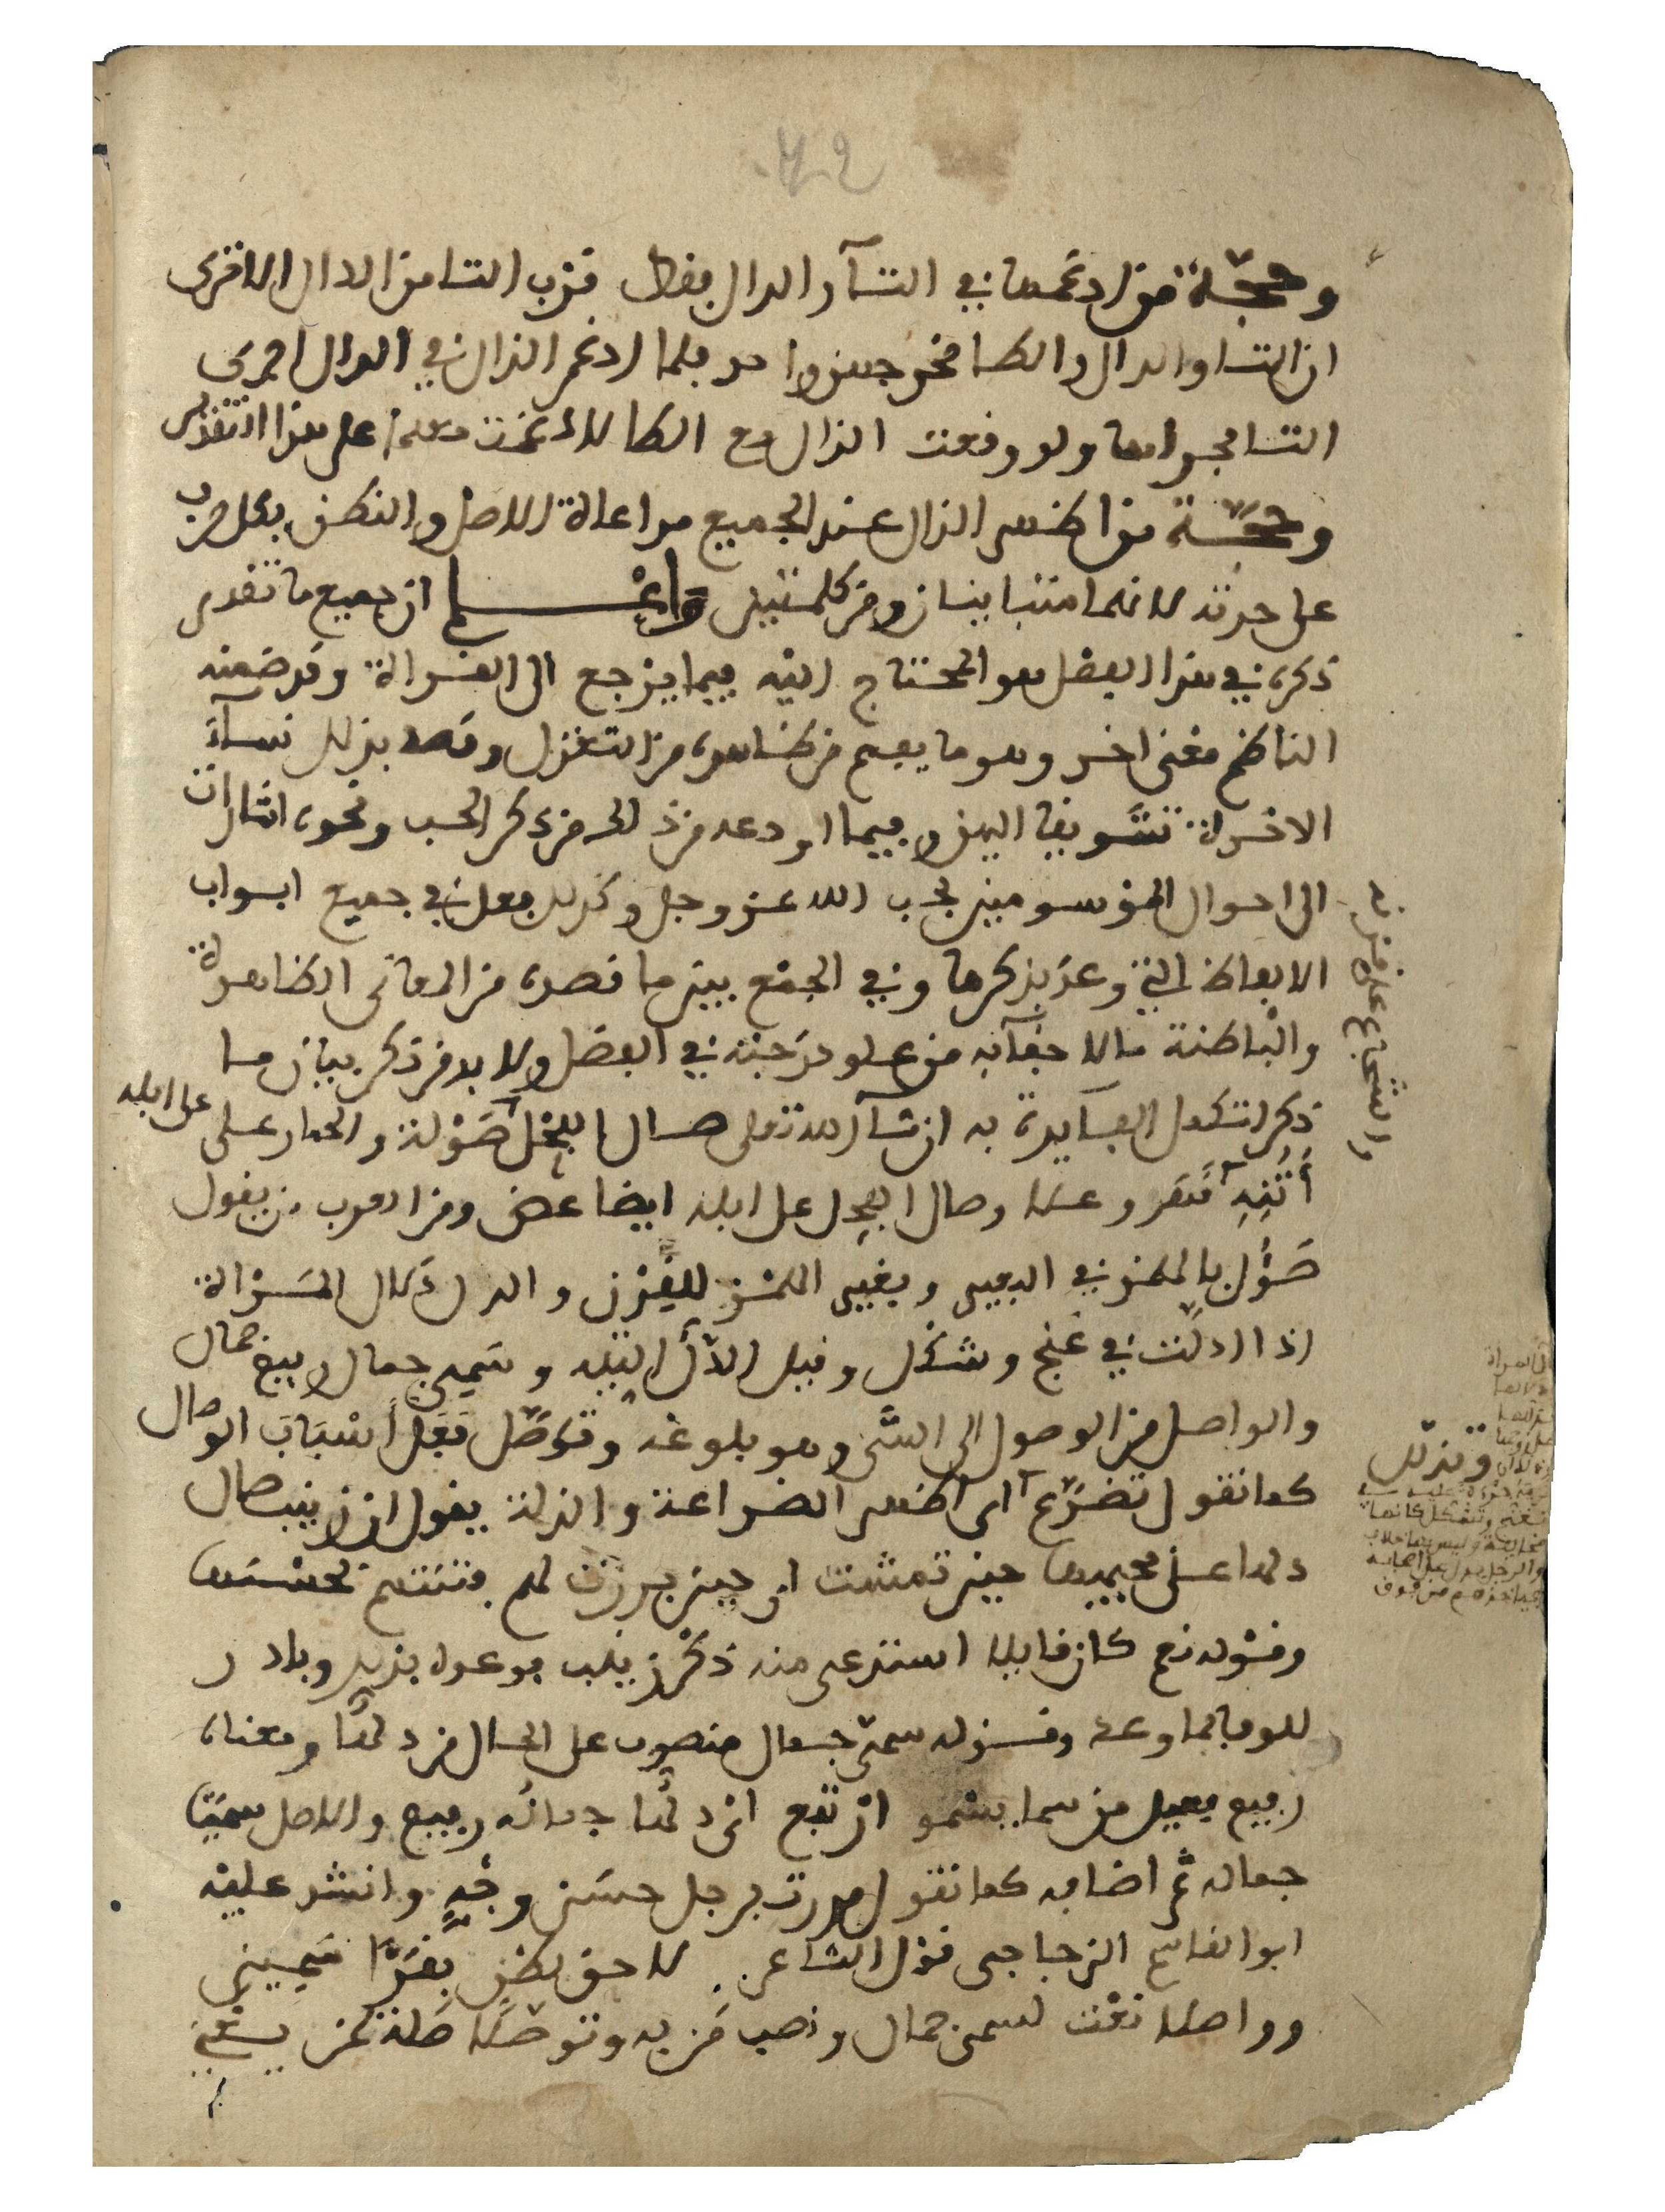 وحجة من ادغمها في التآ والدال فقط قرب التا من الدال الا ترى
ان التا والدال والطا مخرجهن واحد فلما ادغم الذال في الدال اجرى
التا مجراها ولو وقعت الذال مع الطا لادغمت معها على هذا التقدير
وحجة من اظهر الذال عند الجميع مراعاة الاصل والنطق بكل حرف
على حدته لانهما متباينان ومن كلمتين واعلم ان جميع ما تقدم
ذكره في هذا الفصل هو المحتاج اليه فيما يرجع الى القراة وقد ضمنه
الناظم معنى اخر وهو ما يفهم من ظاهره من التغزل وقصد بذلك نساء
الاخرة تشويقا اليهن وفيما اودعه من ذلك من ذكر الحب ونحوه اشارات
الى احوال الموسومين بحب الله عز وجل وكذلك فعل في جميع ابواب
الالفاظ التي وعد بذكرها وفي الجمع بين ما قصده من المعاني الظاهرة
والباطنة ما لا خفآ به من علو درجته في الفضل ولا بد من ذكر بيان ما
ذكر لتكمل الفايدة به ان شآ الله تعلى صال الفحل صولة والحمار على
على ابله
أتنه قهر وعلا وصال الفحل على ابله ايضا عض ومن العرب من يقول
صؤل بالهمز في البعير وبغير الهمز للقرن والدل دلال المراة
اذا ادلت في غنج وشكل وقيل الدل التيه وسمي جمال رفيع جمال
والواصل من الوصول الى الشى وهو بلوغه وتوصل فعل أسباب الوصال
كما تقول تضرع اى اظهر الضراعة والذلة يقول ان زينب صال
دلها على محبيها حين تمشت او حين برزت لهم فتنتهم بحسنها
وقوله نعم كان قايلا استدعى منه ذكر زينب فوعده بذلك وبادر
للوفا بما وعد وقوله سمى جمال منصوب على الحال من دلها ومعناه
رفيع فعيل من سما يسمو ارتفع اى دلها جماله رفيع والاصل سميا
جماله ثم اضافه كما تقول مررت برجل حسن وجه وانشد عليه
ابو القاسم الزجاجي قول الشاعر لاحق بطن بقرا سمين
وواصلا نعت لسمى جمال ونصب من به وتوصلا صلة لمن يعني
والشجاع على قرنه
وتدلل